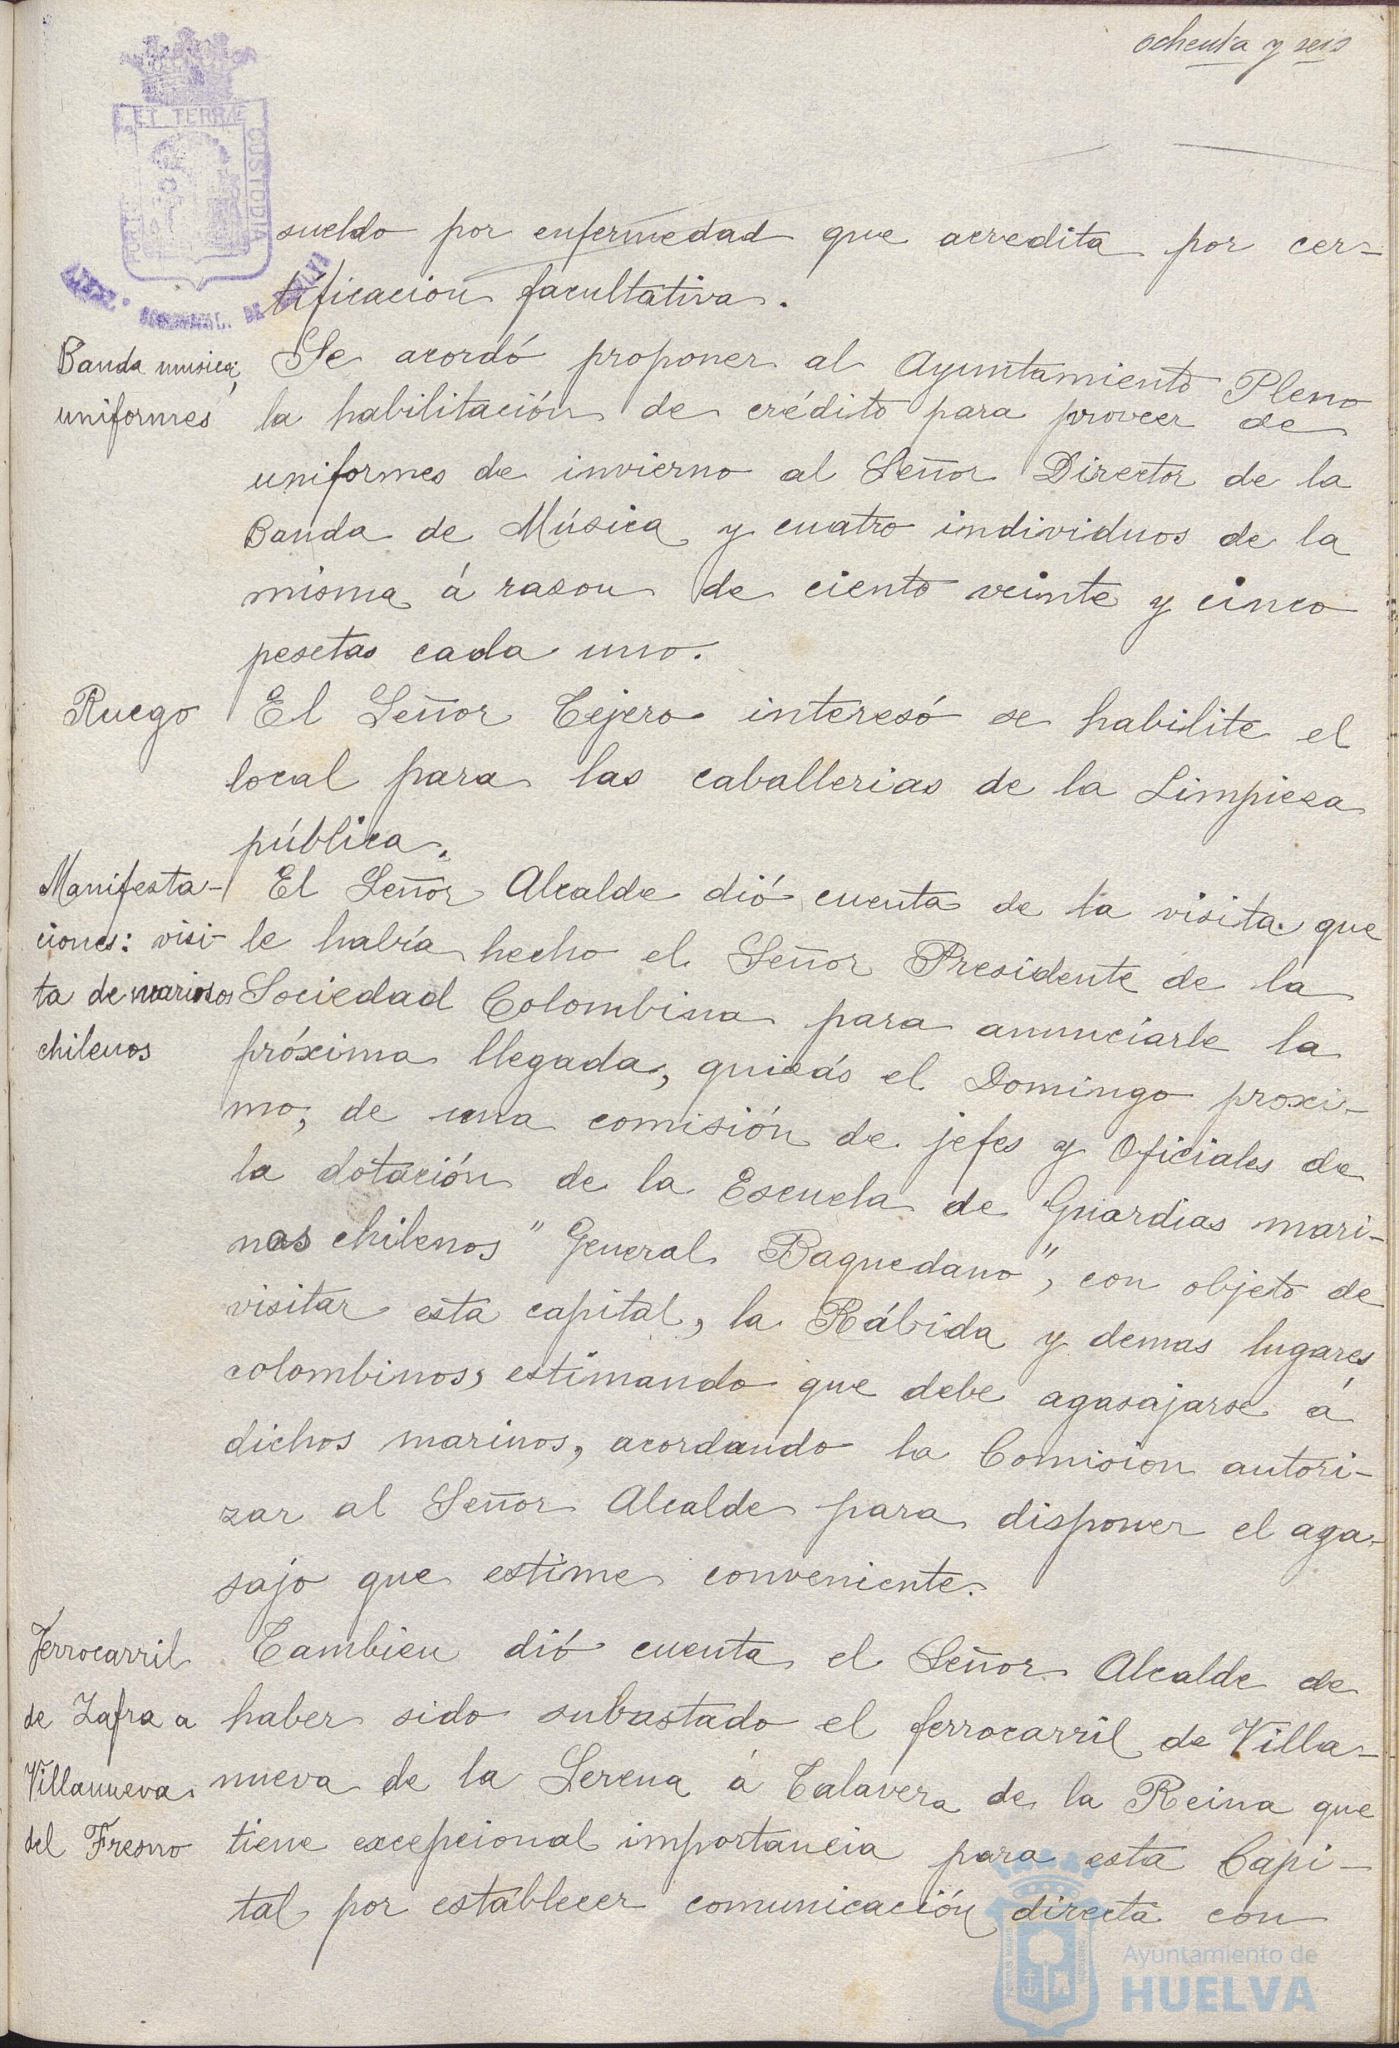 ochenta y seis
ET TERRÆ
CUSTODIA
sueldo por enfermedad que acredita por cer-
tificacion facultativa.
Banda musica;
uniformes
Se acordó proponer al Ayuntamiento Pleno
la habilitación de crédito para proveer de
uniformes de invierno al Señor Director de la
Banda de Música y cuatro individuos de la
misma á rason de ciento veinte y cinco
pesetas cada uno.
Ruego
El Señor Tejero interesó se habilite el
local para las caballerias de la Limpiesa
pública.
Manifesta-
ciones: visi-
ta de marinos
chilenos
El Señor Alcalde dió cuenta de la visita que
le habría hecho el Señor Presidente de la
Sociedad Colombina para anunciarle la
próxima llegada, quizás el Domingo proxi-
mo, de una comisión de jefes y Oficiales de
la dotación de la Escuela de Guardias mari-
nas chilenos "General Baquedano", con objeto de
visitar esta capital, la Rábida y demas lugares
colombinos, estimando que debe agasajarse á
dichos marinos, acordando la Comision autori-
zar al Señor Alcalde para disponer el aga-
sajo que estime conveniente.
Ferrocarril
de Zafra a
Villanueva
del Fresno
Tambien dió cuenta el Señor Alcalde de
haber sido subastado el ferrocarril de Villa-
nueva de la Serena á Talavera de la Reina que
tiene excepcional importancia para esta Capi-
tal por establecer comunicación directa con
Ayuntamiento de
HUELVA